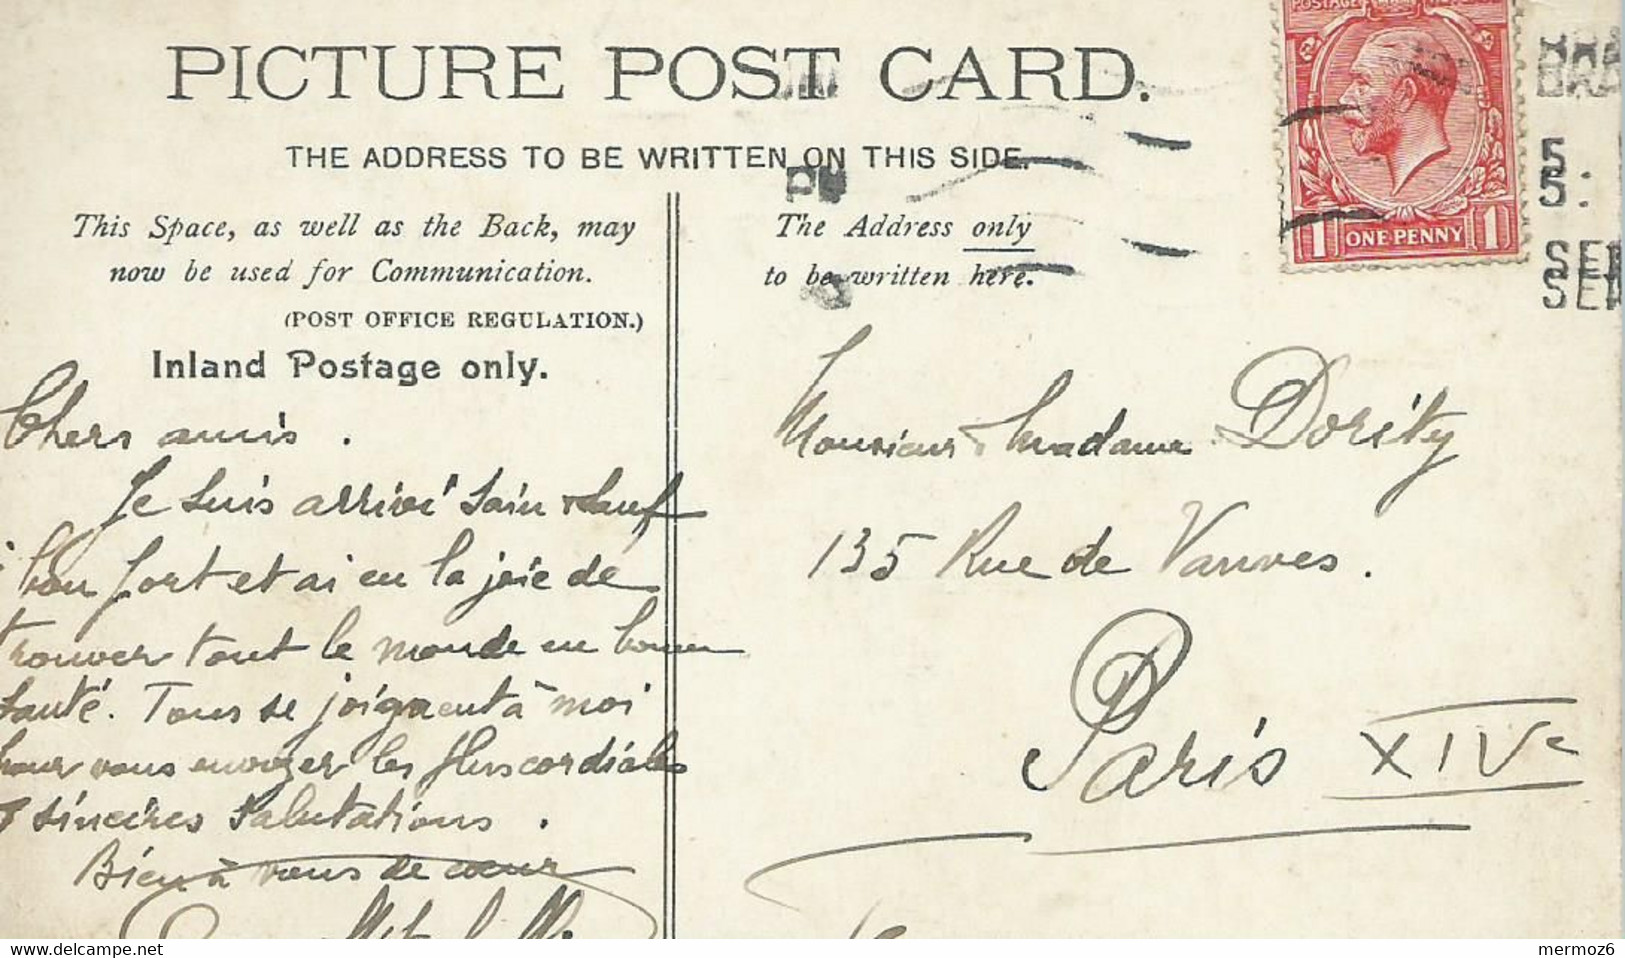 PICTURE POST CARD.
THE ADDRESS TO BE WRITTEN ON THIS SIDE.
This Space, as well as the Back, may
now be used for Communication.
(POST OFFICE REGULATION.)
Inland Postage only.
The Address only
to be written here.
POSTAGE
1 ONE PENNY 1
BRA
5.
SE
Chers amis.
Je suis arrivé sain & sauf
à bon port et ai eu la joie de
trouver tout le monde en bonne
santé. Tous se joignent à moi
pour vous envoyer les plus cordiales
& sincères salutations.
Bien à vous de cœur
Monsieur & Madame Dority
135 Rue de Vanves.
Paris XIVe
delcampe.net
mermoz6